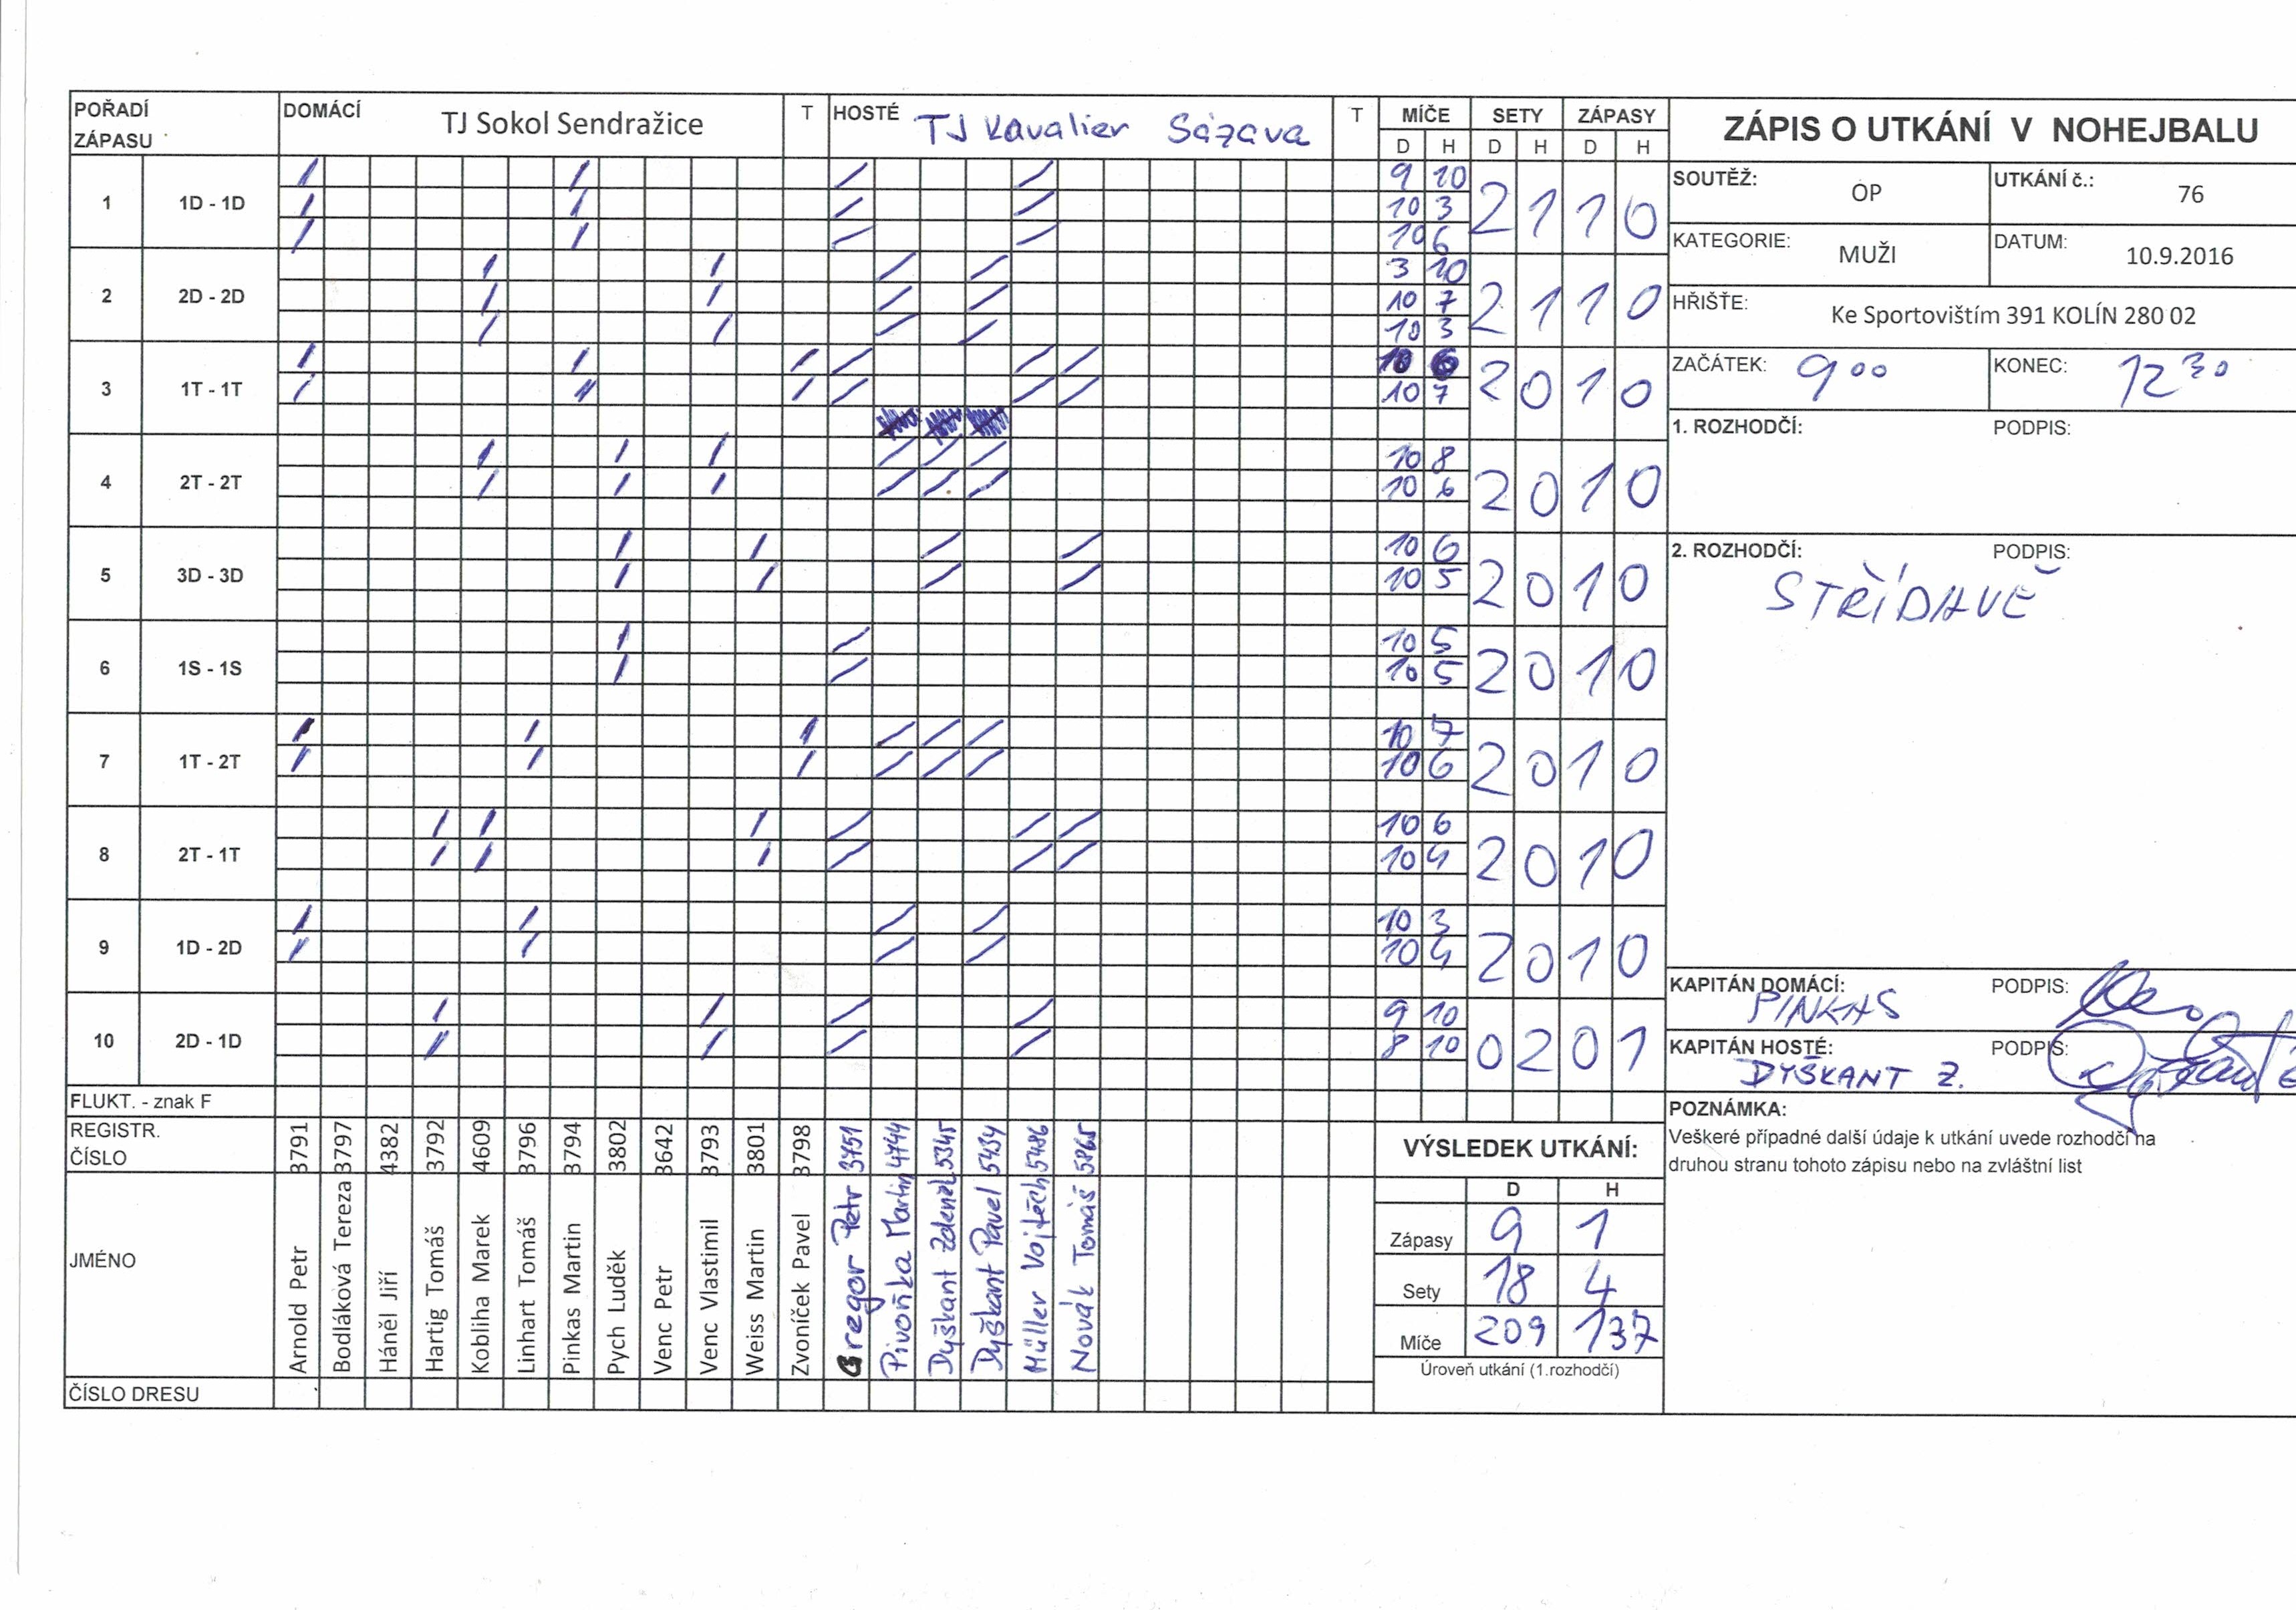 POŘADÍ ZÁPASU DOMÁCÍ TJ Sokol Sendražice T HOSTÉ TJ Kavalier Sázava T MÍČE SETY ZÁPASY
D H D H D H
1 1D - 1D 9 10 2 1 1 0
10 3
10 6
2 2D - 2D 3 10 2 1 1 0
10 7
10 3
3 1T - 1T 10 6 2 0 1 0
10 7
4 2T - 2T 10 8 2 0 1 0
10 6
5 3D - 3D 10 6 2 0 1 0
10 5
6 1S - 1S 10 5 2 0 1 0
10 5
7 1T - 2T 10 7 2 0 1 0
10 6
8 2T - 1T 10 6 2 0 1 0
10 4
9 1D - 2D 10 3 2 0 1 0
10 4
10 2D - 1D 9 10 0 2 0 1
8 10
FLUKT. - znak F
REGISTR. ČÍSLO 3791 3797 4382 3792 4609 3796 3794 3802 3642 3793 3801 3798 3751 4744 5345 5434 5486 5865
JMÉNO
Arnold Petr
Bodláková Tereza
Háněl Jiří
Hartig Tomáš
Kobliha Marek
Linhart Tomáš
Pinkas Martin
Pych Luděk
Venc Petr
Venc Vlastimil
Weiss Martin
Zvoníček Pavel
Gregor Petr
Pivoňka Martin
Dyškant Zdeněk
Dyškant Pavel
Müller Vojtěch
Novák Tomáš
ČÍSLO DRESU
VÝSLEDEK UTKÁNÍ:
D H
Zápasy 9 1
Sety 18 4
Míče 209 137
Úroveň utkání (1.rozhodčí)
ZÁPIS O UTKÁNÍ V NOHEJBALU
SOUTĚŽ: OP UTKÁNÍ č.: 76
KATEGORIE: MUŽI DATUM: 10.9.2016
HŘIŠŤE: Ke Sportovištím 391 KOLÍN 280 02
ZAČÁTEK: 9 00 KONEC: 12 30
1. ROZHODČÍ: PODPIS:
2. ROZHODČÍ: PODPIS:
STŘÍDAVĚ
KAPITÁN DOMÁCÍ: PODPIS:
PINKAS
KAPITÁN HOSTÉ: PODPIS:
DYŠKANT Z.
POZNÁMKA:
Veškeré případné další údaje k utkání uvede rozhodčí na
druhou stranu tohoto zápisu nebo na zvláštní list